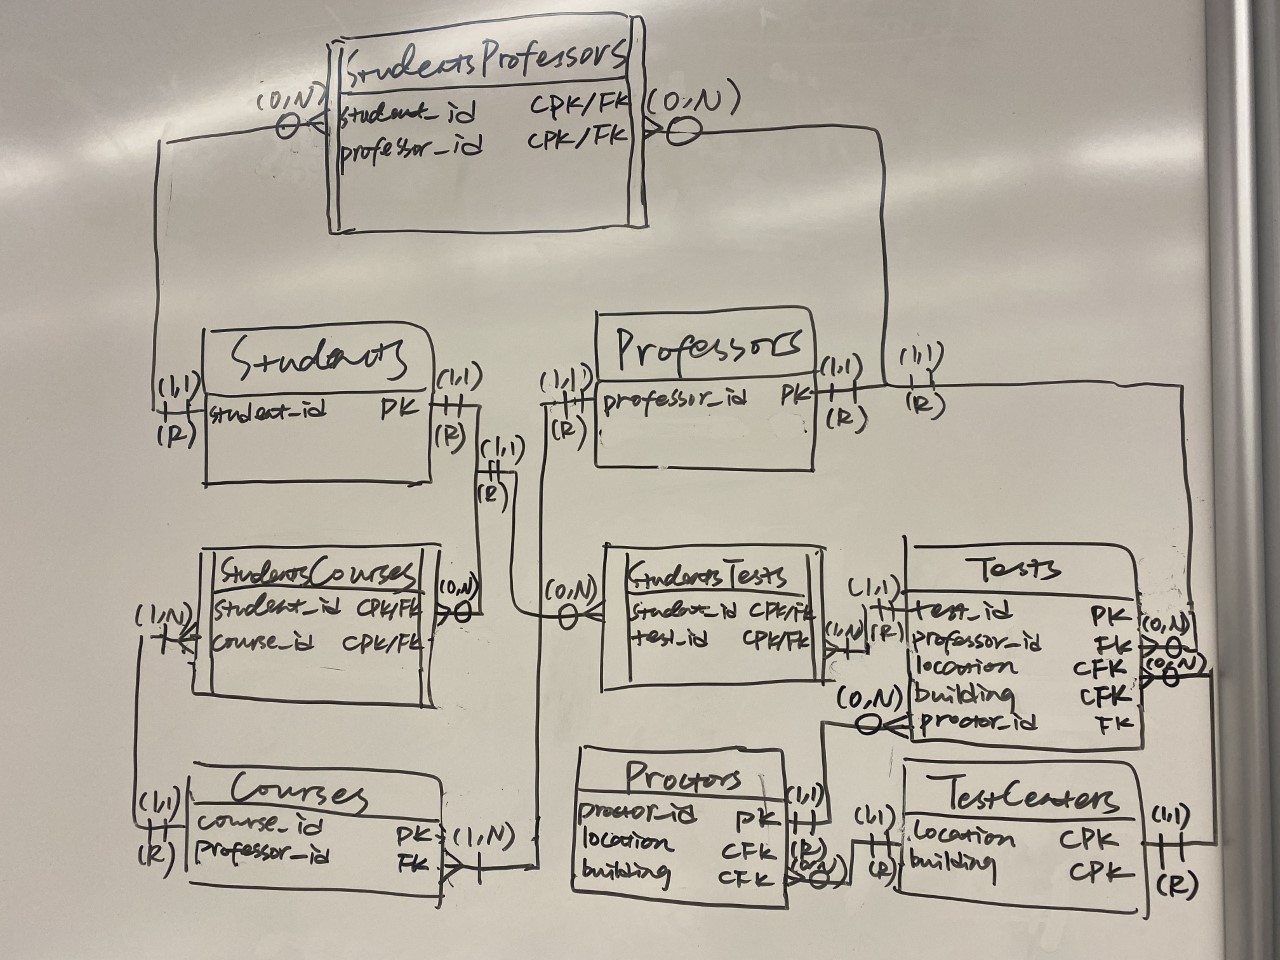 StudentsProfessors
(0,N)
student_id CPK/FK
(0,N)
professor_id CPK/FK
Students
(1,1)
(R)
student_id PK
(1,1)
(R)
(1,1)
(R)
Professors
(1,1)
(R)
professor_id PK
(1,1)
(R)
(1,1)
(R)
StudentsCourses
student_id CPK/FK
(0,N)
(1,N)
course_id CPK/FK
StudentsTests
(0,N)
student_id CPK/FK
test_id CPK/FK
(1,N)
Tests
(1,1)
(R)
test_id PK
professor_id FK
(0,N)
location CFK
(0,N)
building CFK
(0,N)
proctor_id FK
Courses
(1,1)
(R)
course_id PK
professor_id FK
(1,N)
Proctors
proctor_id PK
(1,1)
(R)
location CFK
building CFK
(0,N)
TestCenters
(1,1)
(R)
location CPK
building CPK
(1,1)
(R)